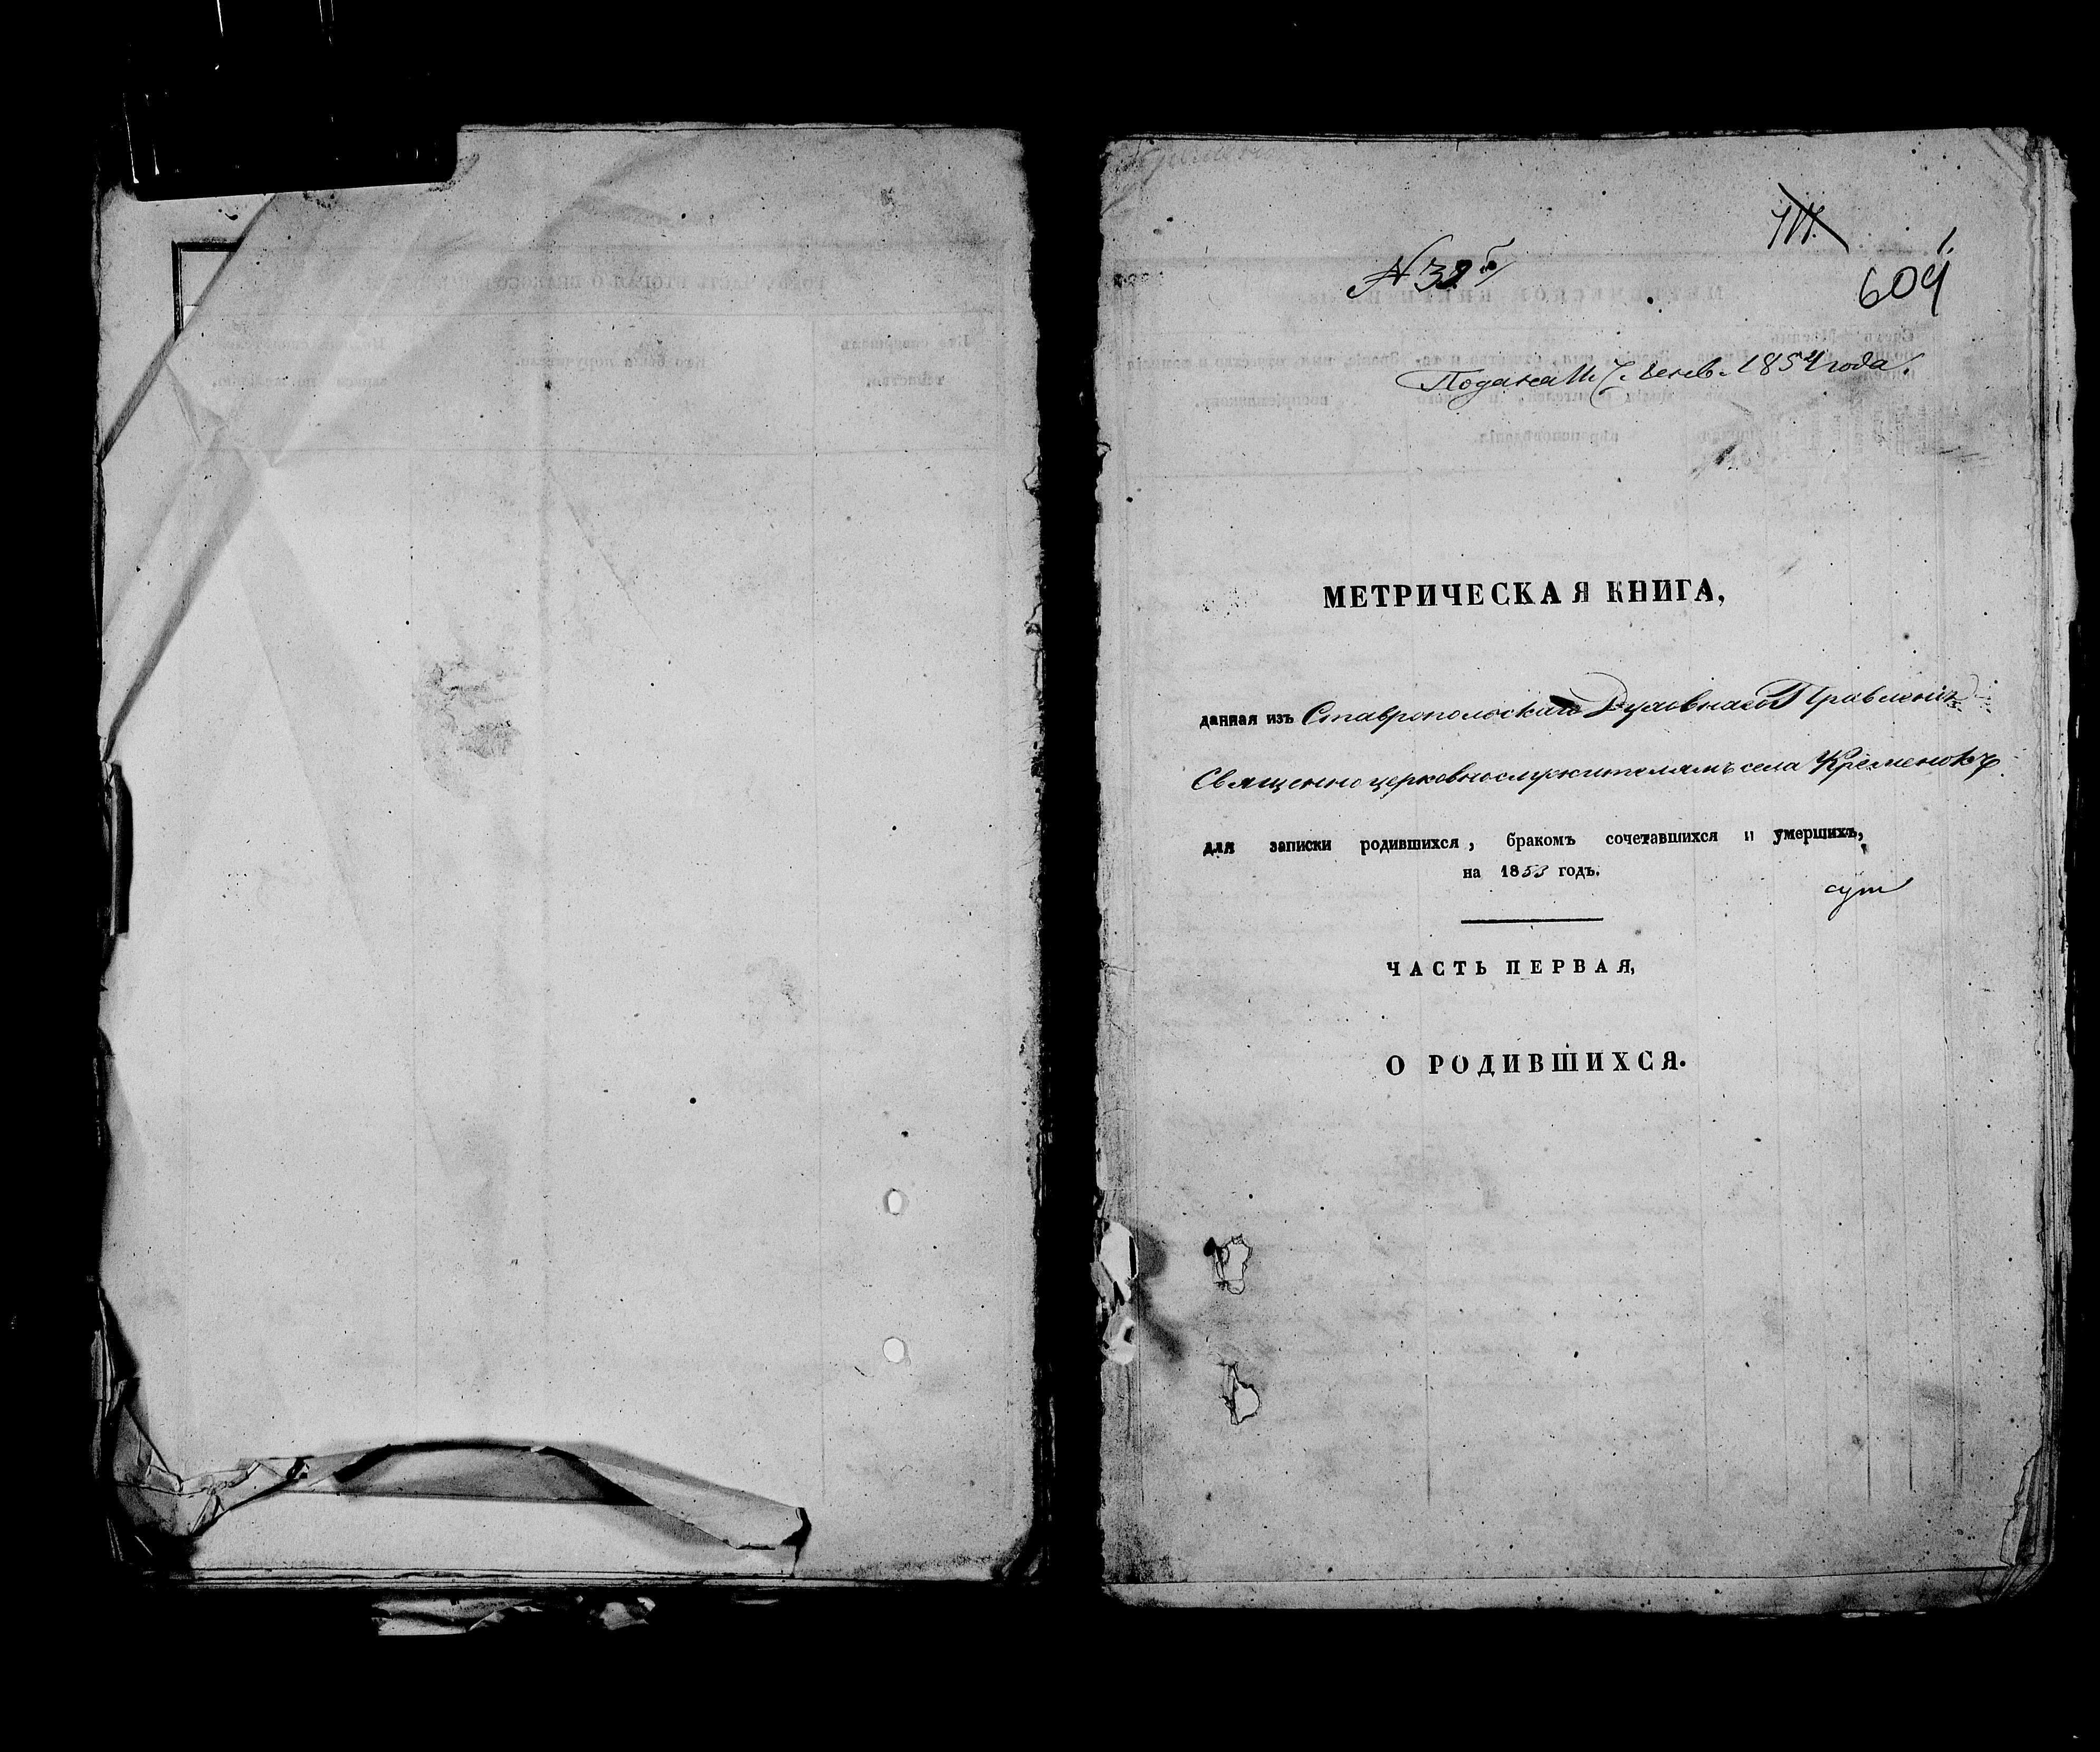 711.
1.
№ 32 б
604
Подана 11. Генв. 1854 года.
МЕТРИЧЕСКАЯ КНИГА,
данная изъ Ставропольскаго Духовнаго Правленія
Священно церковнослужителямъ села Кременокъ
для записки родившихся, бракомъ сочетавшихся и умершихъ,
на 1853 годъ.
ЧАСТЬ ПЕРВАЯ,
О РОДИВШИХСЯ.